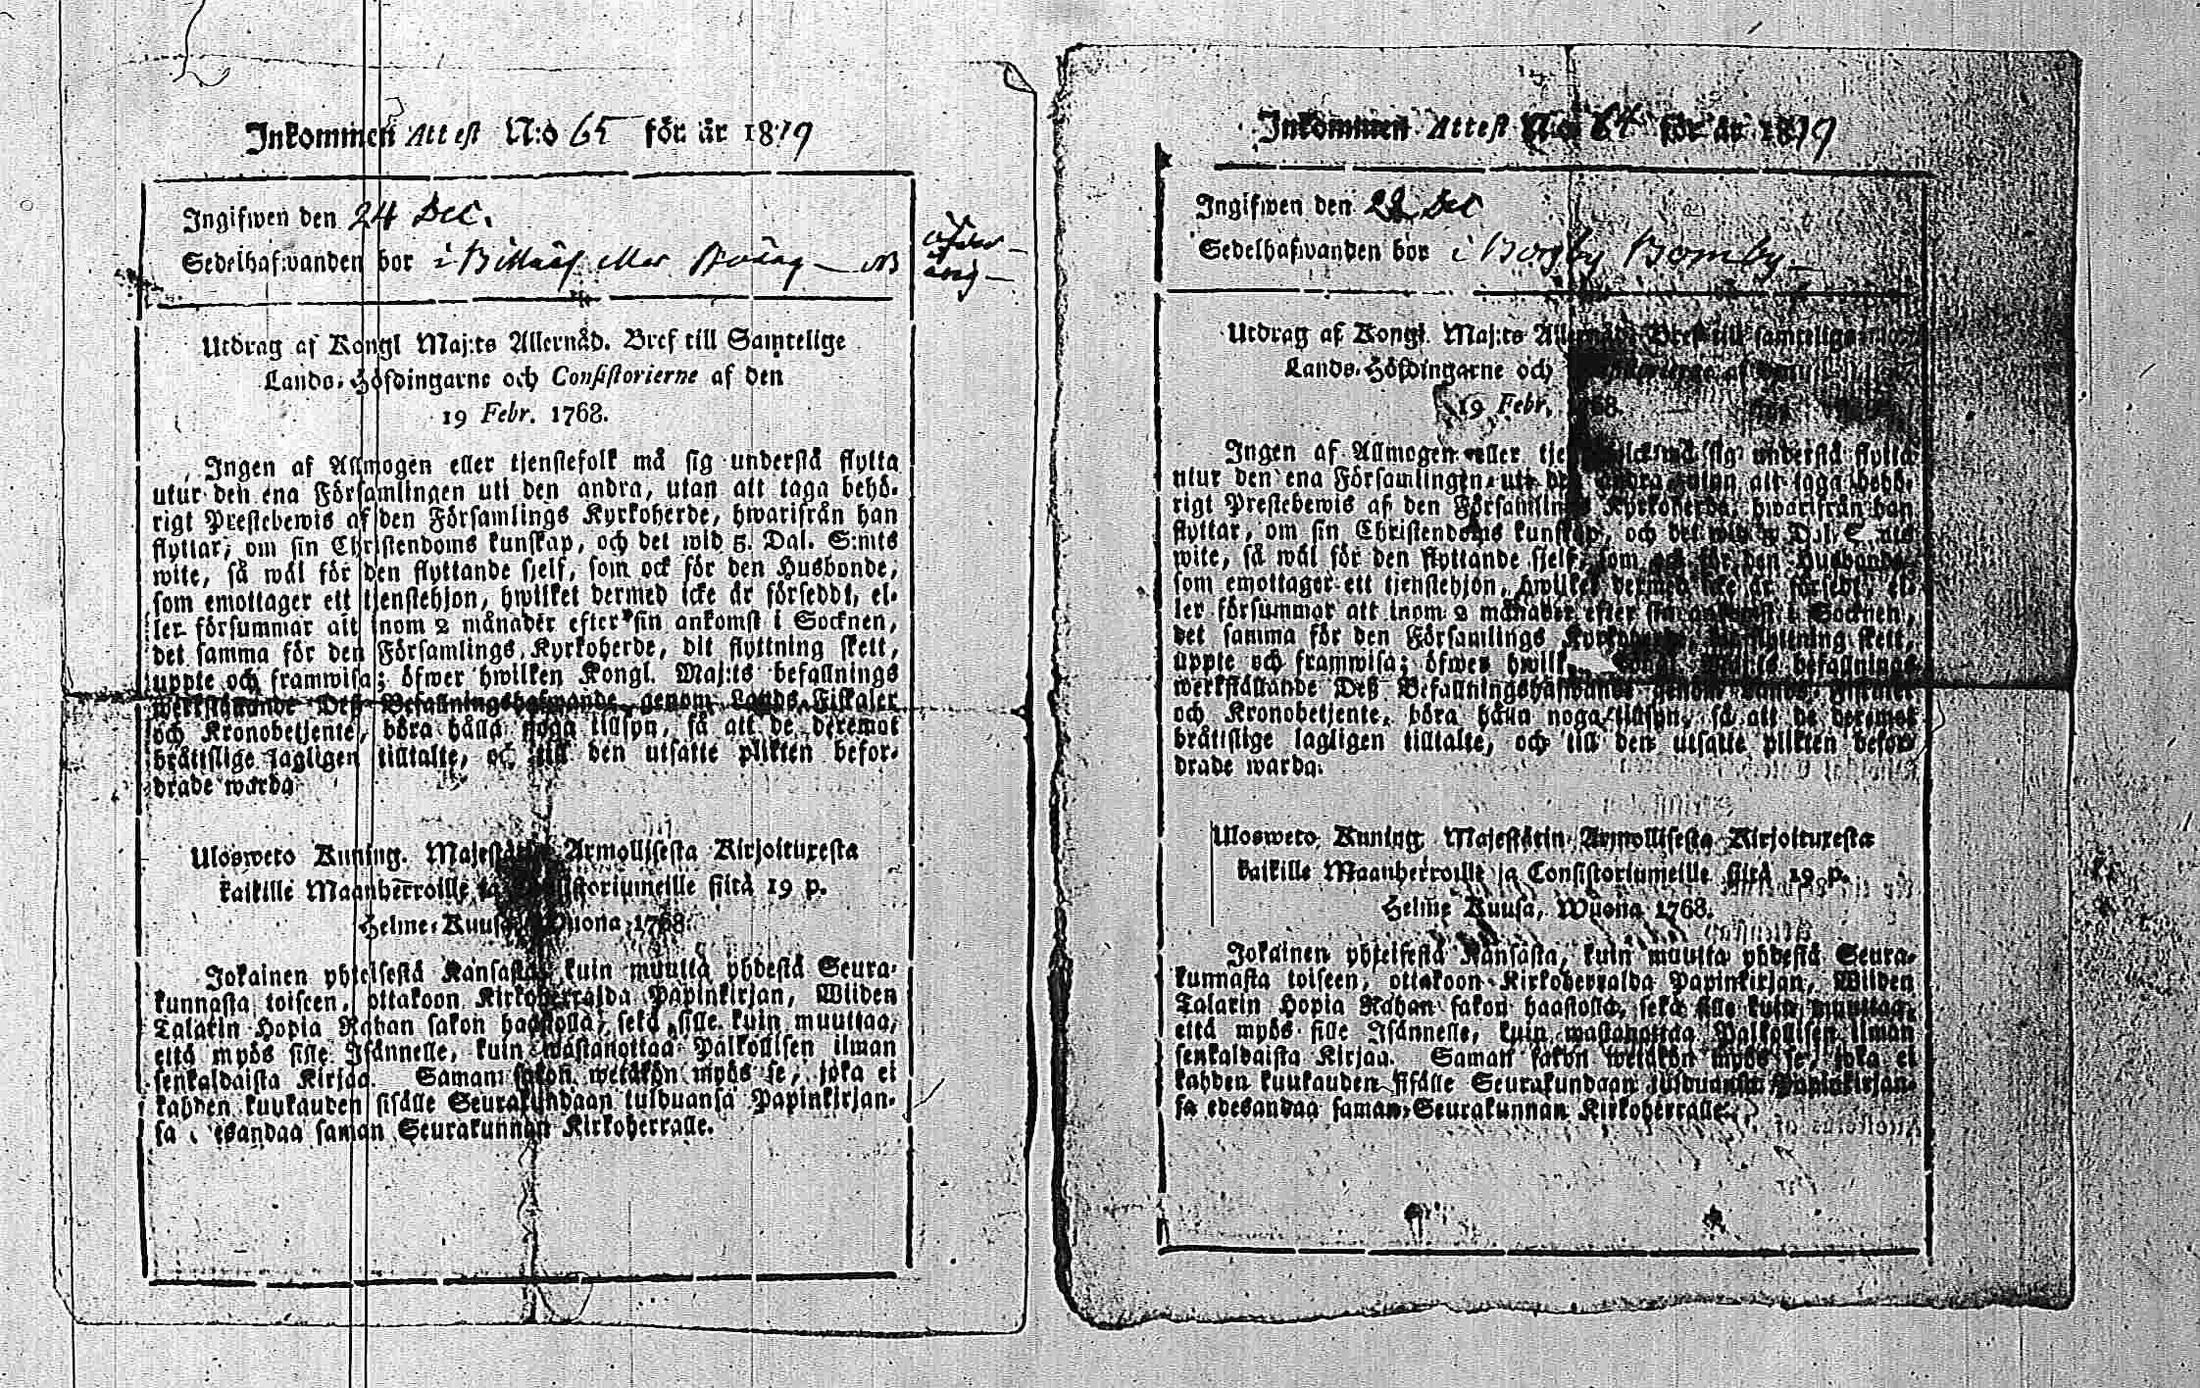 Inkommen Attest N:o 65 för år 1819
Ingifwen den 24 Dec.
Sedelhafwanden bor i Billnäs eller
Utdrag af Kongl Maj:ts Allernåd. Bref till Samtelige
Lands-Höfdingarne och Consistorierne af den
19 Febr. 1768.
Ingen af Allmogen eller tjenstefolk må sig understå flytta
utur den ena Församlingen uti den andra, utan att taga behö-
rigt Prestebewis af den Församlings Kyrkoherde, hwarifrån han
flyttar, om sin Christendoms kunskap, och det wid 5. Dal. S:mts
wite, så wäl för den flyttande sjelf, som ock för den Husbonde,
som emottager ett tjenstehjon, hwilket dermed icke är försedt, el-
ler försummar att inom 2 månader efter sin ankomst i Socknen,
det samma för den Församlings Kyrkoherde, dit flyttning skett,
uppte och framwisa; öfwer hwilken Kongl. Maj:ts befallnings
werkställande Deß Befallningshafwande genom Lands-Fiskaler
och Kronobetjente, böra hålla noga tillsyn, så att de deremot
bråttslige lagligen tilltalte, och till den utsatte plikten befor-
drade warda.
Ulosweto Kuning. Majestätin Armollisesta Kirjoituxesta
kaikille Maanherroille ja Consistoriumeille siitä 19 p.
Helme-Kuusa, Wuona 1768.
Jokainen yhteisestä Kansasta, kuin muutta yhdestä Seura-
kunnasta toiseen, ottakoon Kirkoherralda Papinkirjan, Wiiden
Talarin Hopia Rahan sakon haastolla, sekä sille kuin muuttaa,
että myös sille Isännelle, kuin wastanottaa Palkollisen ilman
senkaldaista Kirjaa. Saman sakon wetäkön myös se, joka ei
kahden kuukauden sisälle Seurakundaan tulduansa Papinkirjan-
sa edesandaa saman Seurakunnan Kirkoherralle.
Inkommen Attest N:o 64 för år 1819
Ingifwen den 22 Dec
Sedelhafwanden bor i Borgby Bomby
Utdrag af Kongl. Maj:ts Allernåd. Bref till samtelige
Lands-Höfdingarne och
19 Febr. 1768.
Ingen af Allmogen eller tjenstefolck må sig understå flytta
utur den ena Församlingen uti den andra, utan att taga behö-
rigt Prestebewis af den Församlings Kyrkoherde, hwarifrån han
flyttar, om sin Christendoms kunskap, och det wid 5 Dal. S:mts
wite, så wäl för den flyttande sjelf, som ock för den Husbonde,
som emottager ett tjenstehjon, hwilket dermed icke är försedt, el-
ler försummar att inom 2 månader efter sin ankomst i Socknen,
det samma för den Församlings Kyrkoherde, dit flyttning skett,
uppte och framwisa; öfwer hwilken Kongl. Maj:ts befallnings
werkställande Deß Befallningshafwande genom Lands-Fiskaler
och Kronobetjente, böra hålla noga tillsyn, så att de deremot
bråttslige lagligen tilltalte, och till den utsatte plikten befor-
drade warda.
Ulosweto Kuning. Majestätin Armollisesta Kirjoituxesta
kaikille Maanherroille ja Consistoriumeille siitä 19 p.
Helme Kuusa, Wuona 1768.
Jokainen yhteisestä Kansasta, kuin muutta yhdestä Seura-
kunnasta toiseen, ottakoon Kirkoherralda Papinkirjan, Wiiden
Talarin Hopia Rahan sakon haastolla, sekä sille kuin muuttaa,
että myös sille Isännelle, kuin wastanottaa Palkollisen ilman
senkaldaista Kirjaa. Saman sakon wetäkön myös se, joka ei
kahden kuukauden sisälle Seurakundaan tulduansa Papinkirjan-
sa edesandaa saman Seurakunnan Kirkoherralle.